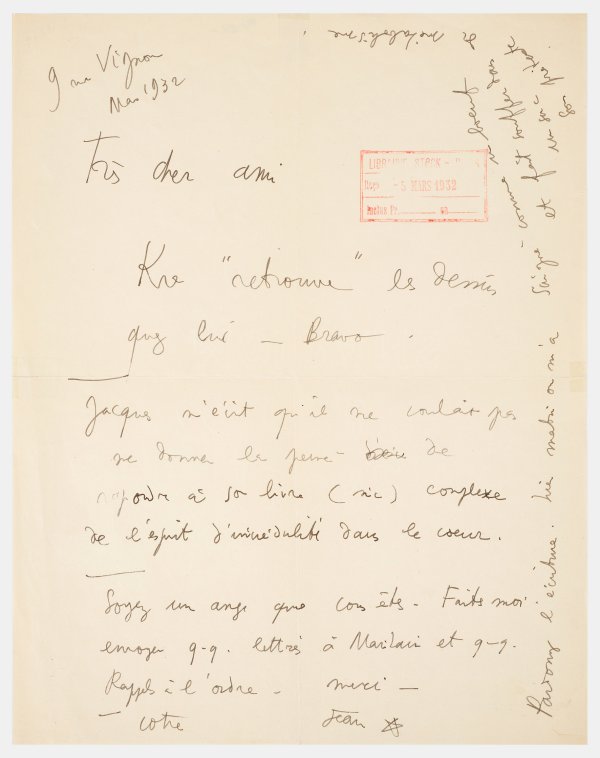 9 rue Vignon
Mars 1932
Très cher ami
LIBRAIRIE STOCK
Reçu - 5 MARS 1932
Kra "retrouve" les dessins
chez lui — Bravo.
Jacques m'écrit qu'il ne voulait pas
me donner la peine de
repondre à son livre (sic) complexe
de l'esprit d'incrédulité dans le coeur.
Soyez un ange que vous êtes. Faites moi
envoyer q-q. lettres à Maritain et q-q.
Rappels à l'ordre — merci —
— votre Jean
Pardonnez l'écriture. hier matin on m'a saigné - comme un boeuf
et fait souffler dans
un sac
de métabolisme.